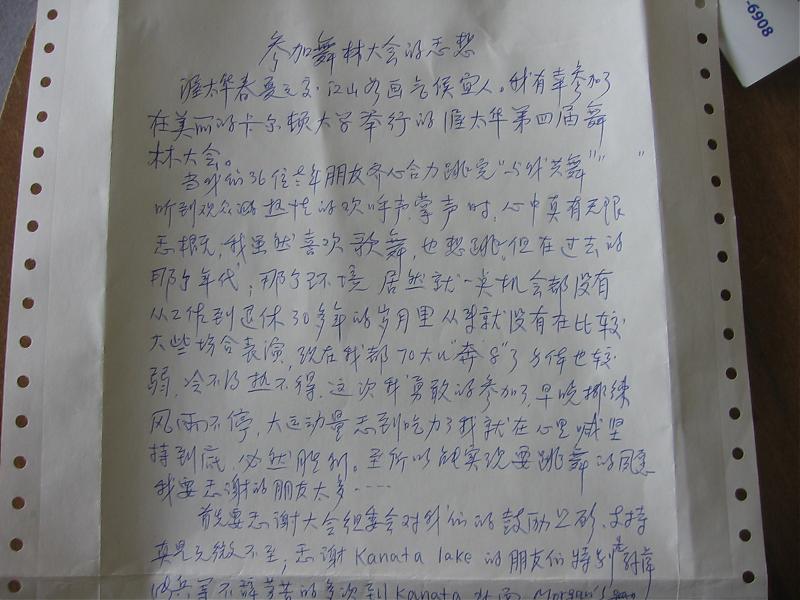 -6908
参加舞林大会的感想
渥太华春夏之交,江山如画气候宜人。我有幸参加了
在美丽的卡尔顿大学举行的渥太华第四届舞
林大会。
当我们36位老年朋友齐心合力跳完"与我共舞"
听到观众热性的欢呼声,掌声时,心中真有无限
感慨,我虽然喜欢歌舞,也想跳,但在过去的
那个年代,那个环境居然就一点机会都没有
从工作到退休30多年的岁月里从来就没有在比较
大些场合表演,现在我都70大几"奔8"了身体也较
弱,冷不得热不得,这次我勇敢的参加了,早晚排练
风雨不停,大运动量感到吃力了我就在心里喊坚
持到底,必然胜利。至所以能实现要跳舞的愿
我要感谢的朋友太多……
首先要感谢大会组委会对我们的鼓励 支持
真是无微不至,感谢Kanata lake的朋友们特别是
等不辞劳苦的多次到Kanata Morgan's